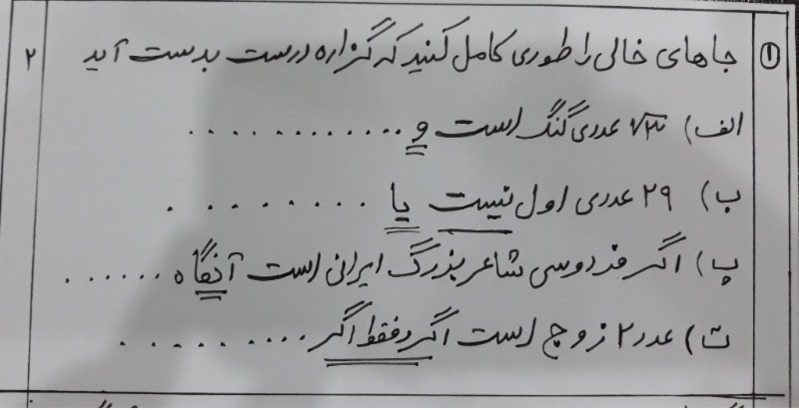 ۱ جاهای خالی را طوری کامل کنید که گزاره درست بدست آید ۲
الف) √۳ عددی گنگ است و ............
ب) ۲۹ عددی اول نیست یا .........
پ) اگر فردوسی شاعر بزرگ ایرانی است آنگاه ......
ت) عدد ۲ زوج است اگر و فقط اگر ..........